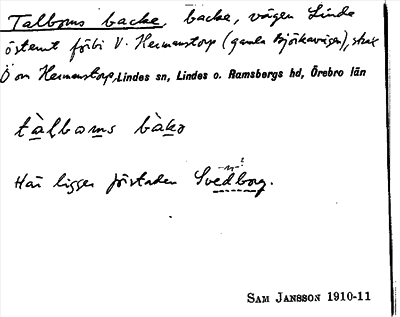 Talboms backe, backe, vägen Linde
österut förbi V. Hermanstorp (gamla Björkavägen), strax
Ö om Hermanstorp, Lindes sn, Lindes o. Ramsbergs hd, Örebro län
tàlboms bàkə
Här ligger förstaden Svedborg.
SAM JANSSON 1910-11